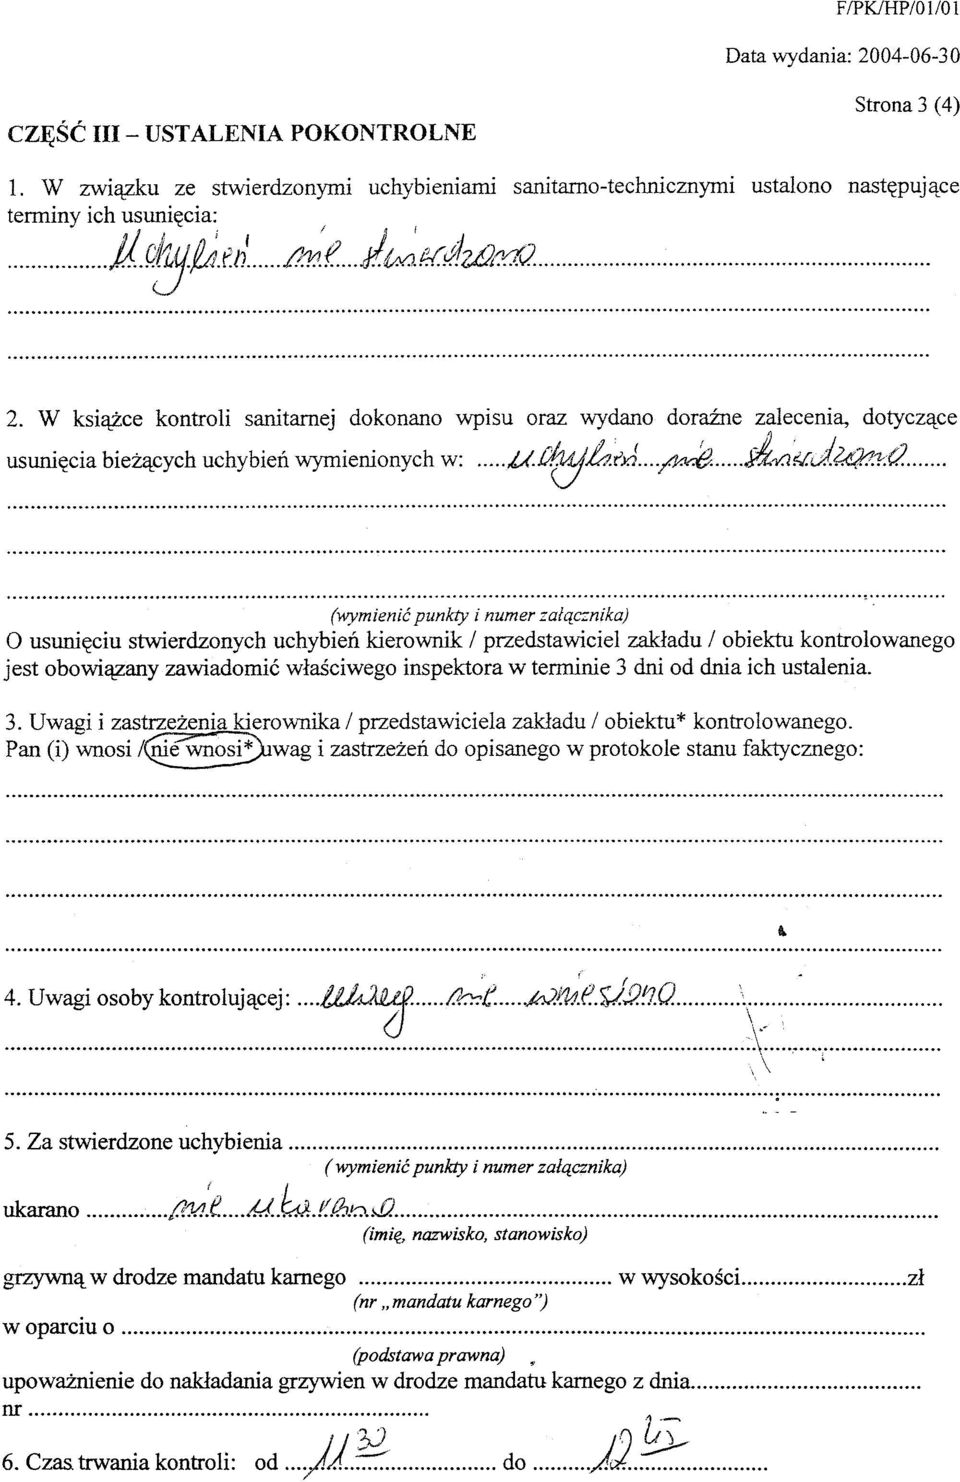 F/PK/HP/01/01
Data wydania: 2004-06-30
Strona 3 (4)
CZĘŚĆ III – USTALENIA POKONTROLNE
1. W związku ze stwierdzonymi uchybieniami sanitarno-technicznymi ustalono następujące
terminy ich usunięcia:
Uchybień nie stwierdzono
2. W książce kontroli sanitarnej dokonano wpisu oraz wydano doraźne zalecenia, dotyczące
usunięcia bieżących uchybień wymienionych w: ..... uchybień nie stwierdzono
(wymienić punkty i numer załącznika)
O usunięciu stwierdzonych uchybień kierownik / przedstawiciel zakładu / obiektu kontrolowanego
jest obowiązany zawiadomić właściwego inspektora w terminie 3 dni od dnia ich ustalenia.
3. Uwagi i zastrzeżenia kierownika / przedstawiciela zakładu / obiektu* kontrolowanego.
Pan (i) wnosi / nie wnosi* uwag i zastrzeżeń do opisanego w protokole stanu faktycznego:
4. Uwagi osoby kontrolującej: .... uwag nie wniesiono
5. Za stwierdzone uchybienia
( wymienić punkty i numer załącznika)
ukarano ..... nie ukarano
(imię, nazwisko, stanowisko)
grzywną w drodze mandatu karnego ..... w wysokości ..... zł
(nr „mandatu karnego")
w oparciu o
(podstawa prawna)
upoważnienie do nakładania grzywien w drodze mandatu karnego z dnia
nr
6. Czas trwania kontroli: od .... 11 30 ..... do ..... 12 45